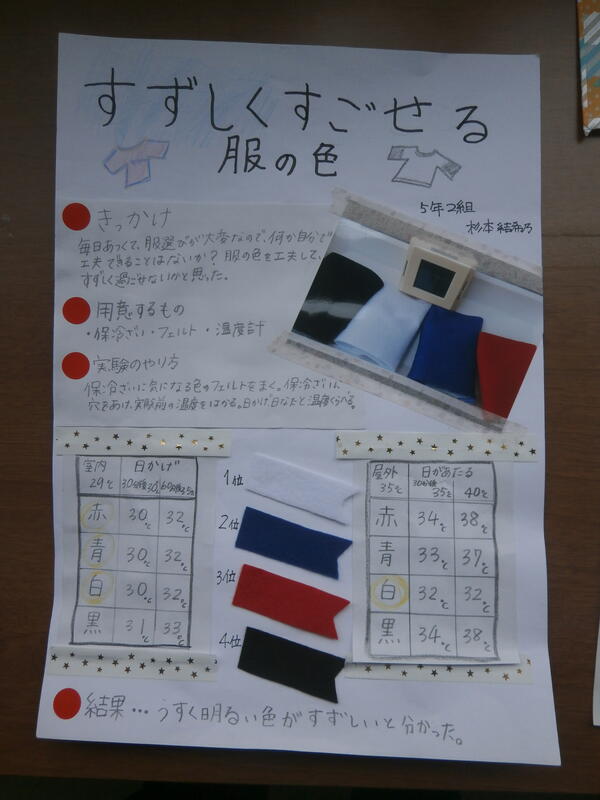 すずしくすごせる
服の色
5年2組
杉本
きっかけ
毎日あつくて、服選びが大変なので、何か自分で
工夫できることはないか?服の色を工夫して、
すずしく過ごせないかと思った。
用意するもの
・保冷ざい・フェルト・温度計
実験のやり方
保冷ざいに気になる色のフェルトをまく。保冷ざいに
穴をあけ、実験前の温度をはかる。日かげ、日なたと温度くらべる。
室内 29℃ 日かげ
30分後 60分後
赤 30℃ 32℃
青 30℃ 32℃
白 30℃ 32℃
黒 31℃ 33℃
1位
2位
3位
4位
屋外 35℃ 日があたる
30分後 35℃ 40℃
赤 34℃ 38℃
青 33℃ 37℃
白 32℃ 32℃
黒 34℃ 38℃
結果…うすく明るい色がすずしいと分かった。